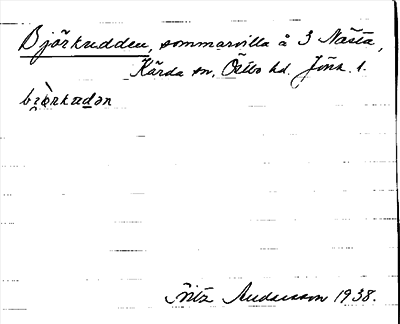 Björkudden, sommarvilla å 3 Nästa,
Kärda sn, Östbo hd. Jönk. l.
bjö̀rkudən
Fritz Andersson 1938.